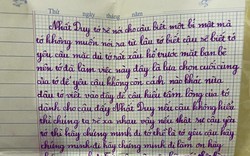 Thứ ngày tháng năm
Nhật Duy tớ sẽ nói cho cậu biết một bí mật mà
tớ không muốn nói ra từ lâu tớ biết cậu sẽ biết tớ
yêu cậu mặc dù tớ rất xấu hổ trước mặt bạn bè
nên tớ đã làm việc này đây là lựa chọn cuối cùng
của tớ để yêu cậu không còn cách nào khác nữa
đâu tớ viết vào đấy để cậu hiểu tấm lòng của tớ
dành cho cậu đấy Nhật Duy nếu cậu không hiểu
thì chúng ta sẽ xa nhau vậy nếu thật sự cậu yêu
tớ thì hãy chứng minh đi tớ thế là tớ yêu cậu hãy
chứng minh đi hãy chứng minh đi làm ơn hãy